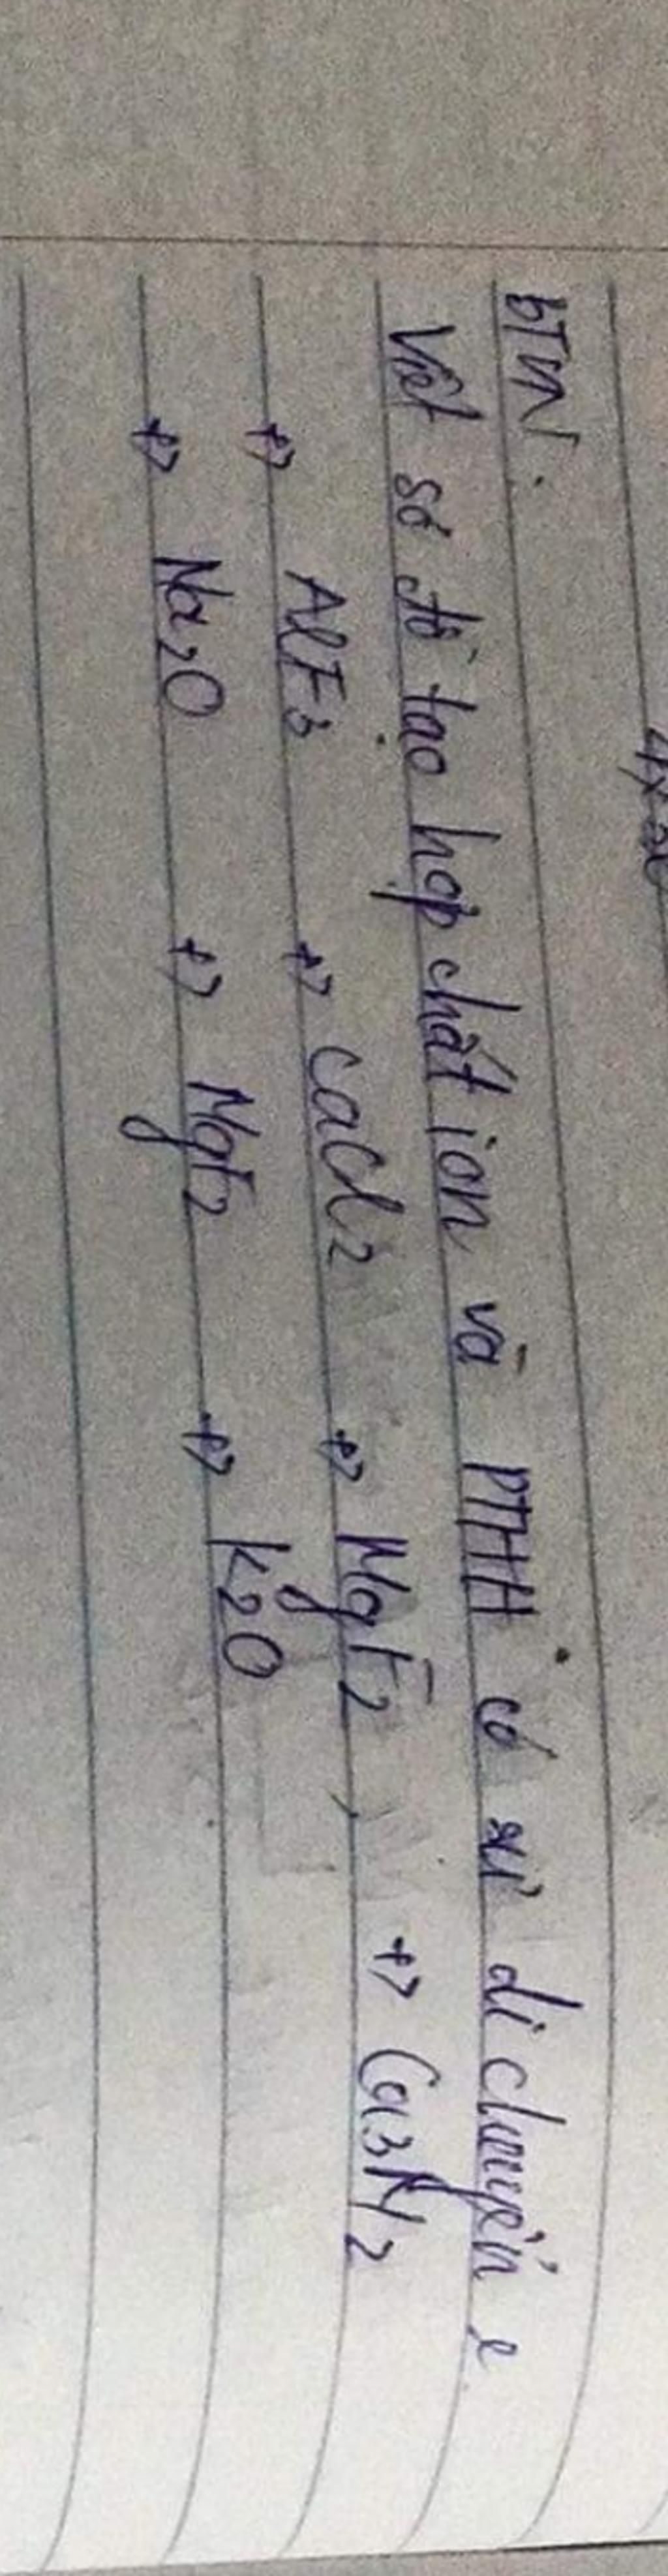 BTVN:
Viết sơ đồ tạo hợp chất ion và PTHH có sự di chuyển e
+) AlF3 +) CaCl2 +) MgF2 +) Ca3N2
+) Na2O +) MgF2 +) K2O